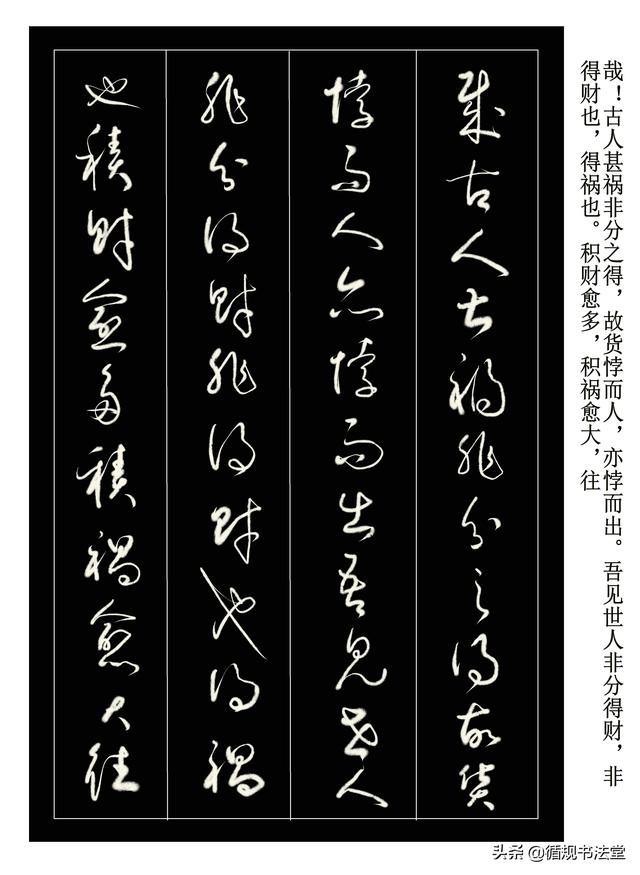 哉！古人甚祸非分之得，故货悖而人，亦悖而出。吾见世人非分得财，非
得财也，得祸也。积财愈多，积祸愈大，往
哉古人甚禍非分之得故貨
悖而人亦悖而出吾見世人
非分得財非得財也得禍
也積財愈多積禍愈大往
头条 @循规书法堂